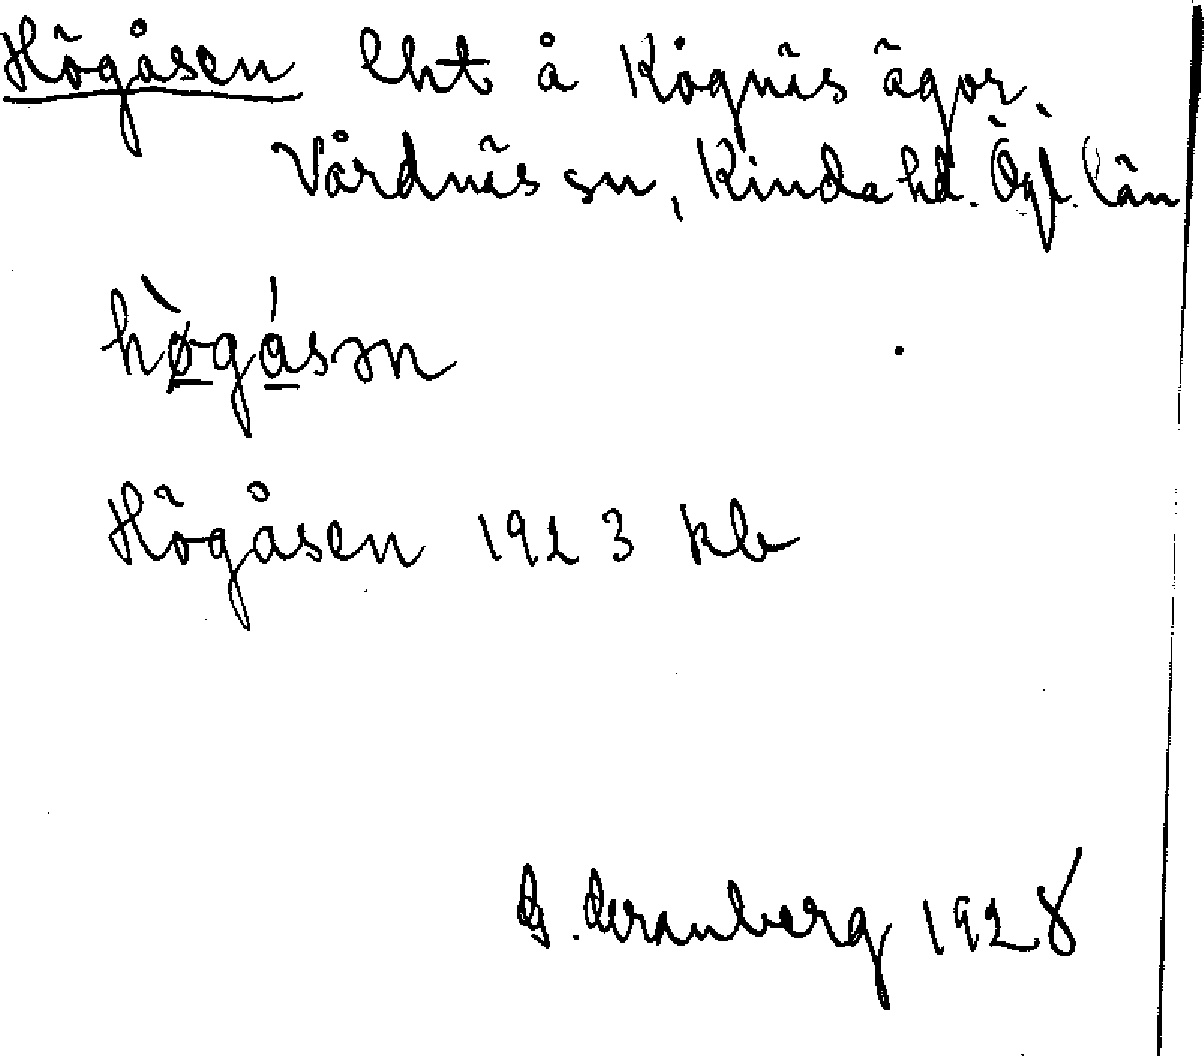 Högåsen lht å Rögnäs ägor,
Vårdnäs sn, Kinda hd. Ögl. län
hø̀gásən
Högåsen 1923 kb
G. 1928